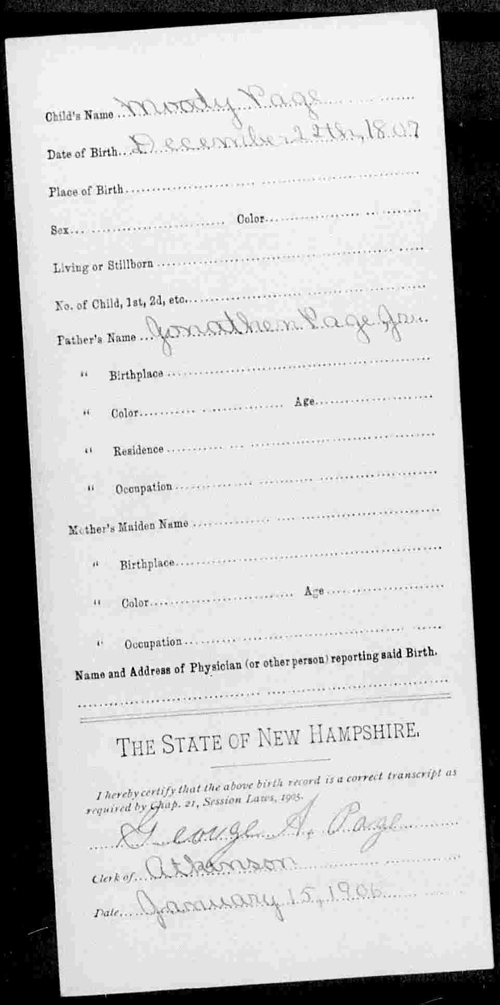 Child's Name Moody Page
Date of Birth December 22th, 1807
Place of Birth
Sex Color
Living or Stillborn
No. of Child, 1st, 2d, etc.
Father's Name Jonathen Page Jr.
" Birthplace
" Color Age
" Residence
" Occupation
Mother's Maiden Name
" Birthplace
" Color Age
" Occupation
Name and Address of Physician (or other person) reporting said Birth.
THE STATE OF NEW HAMPSHIRE.
I hereby certify that the above birth record is a correct transcript as
required by Chap. 21, Session Laws, 1905.
George A. Page
Clerk of Atkinson
Date January 15, 1906